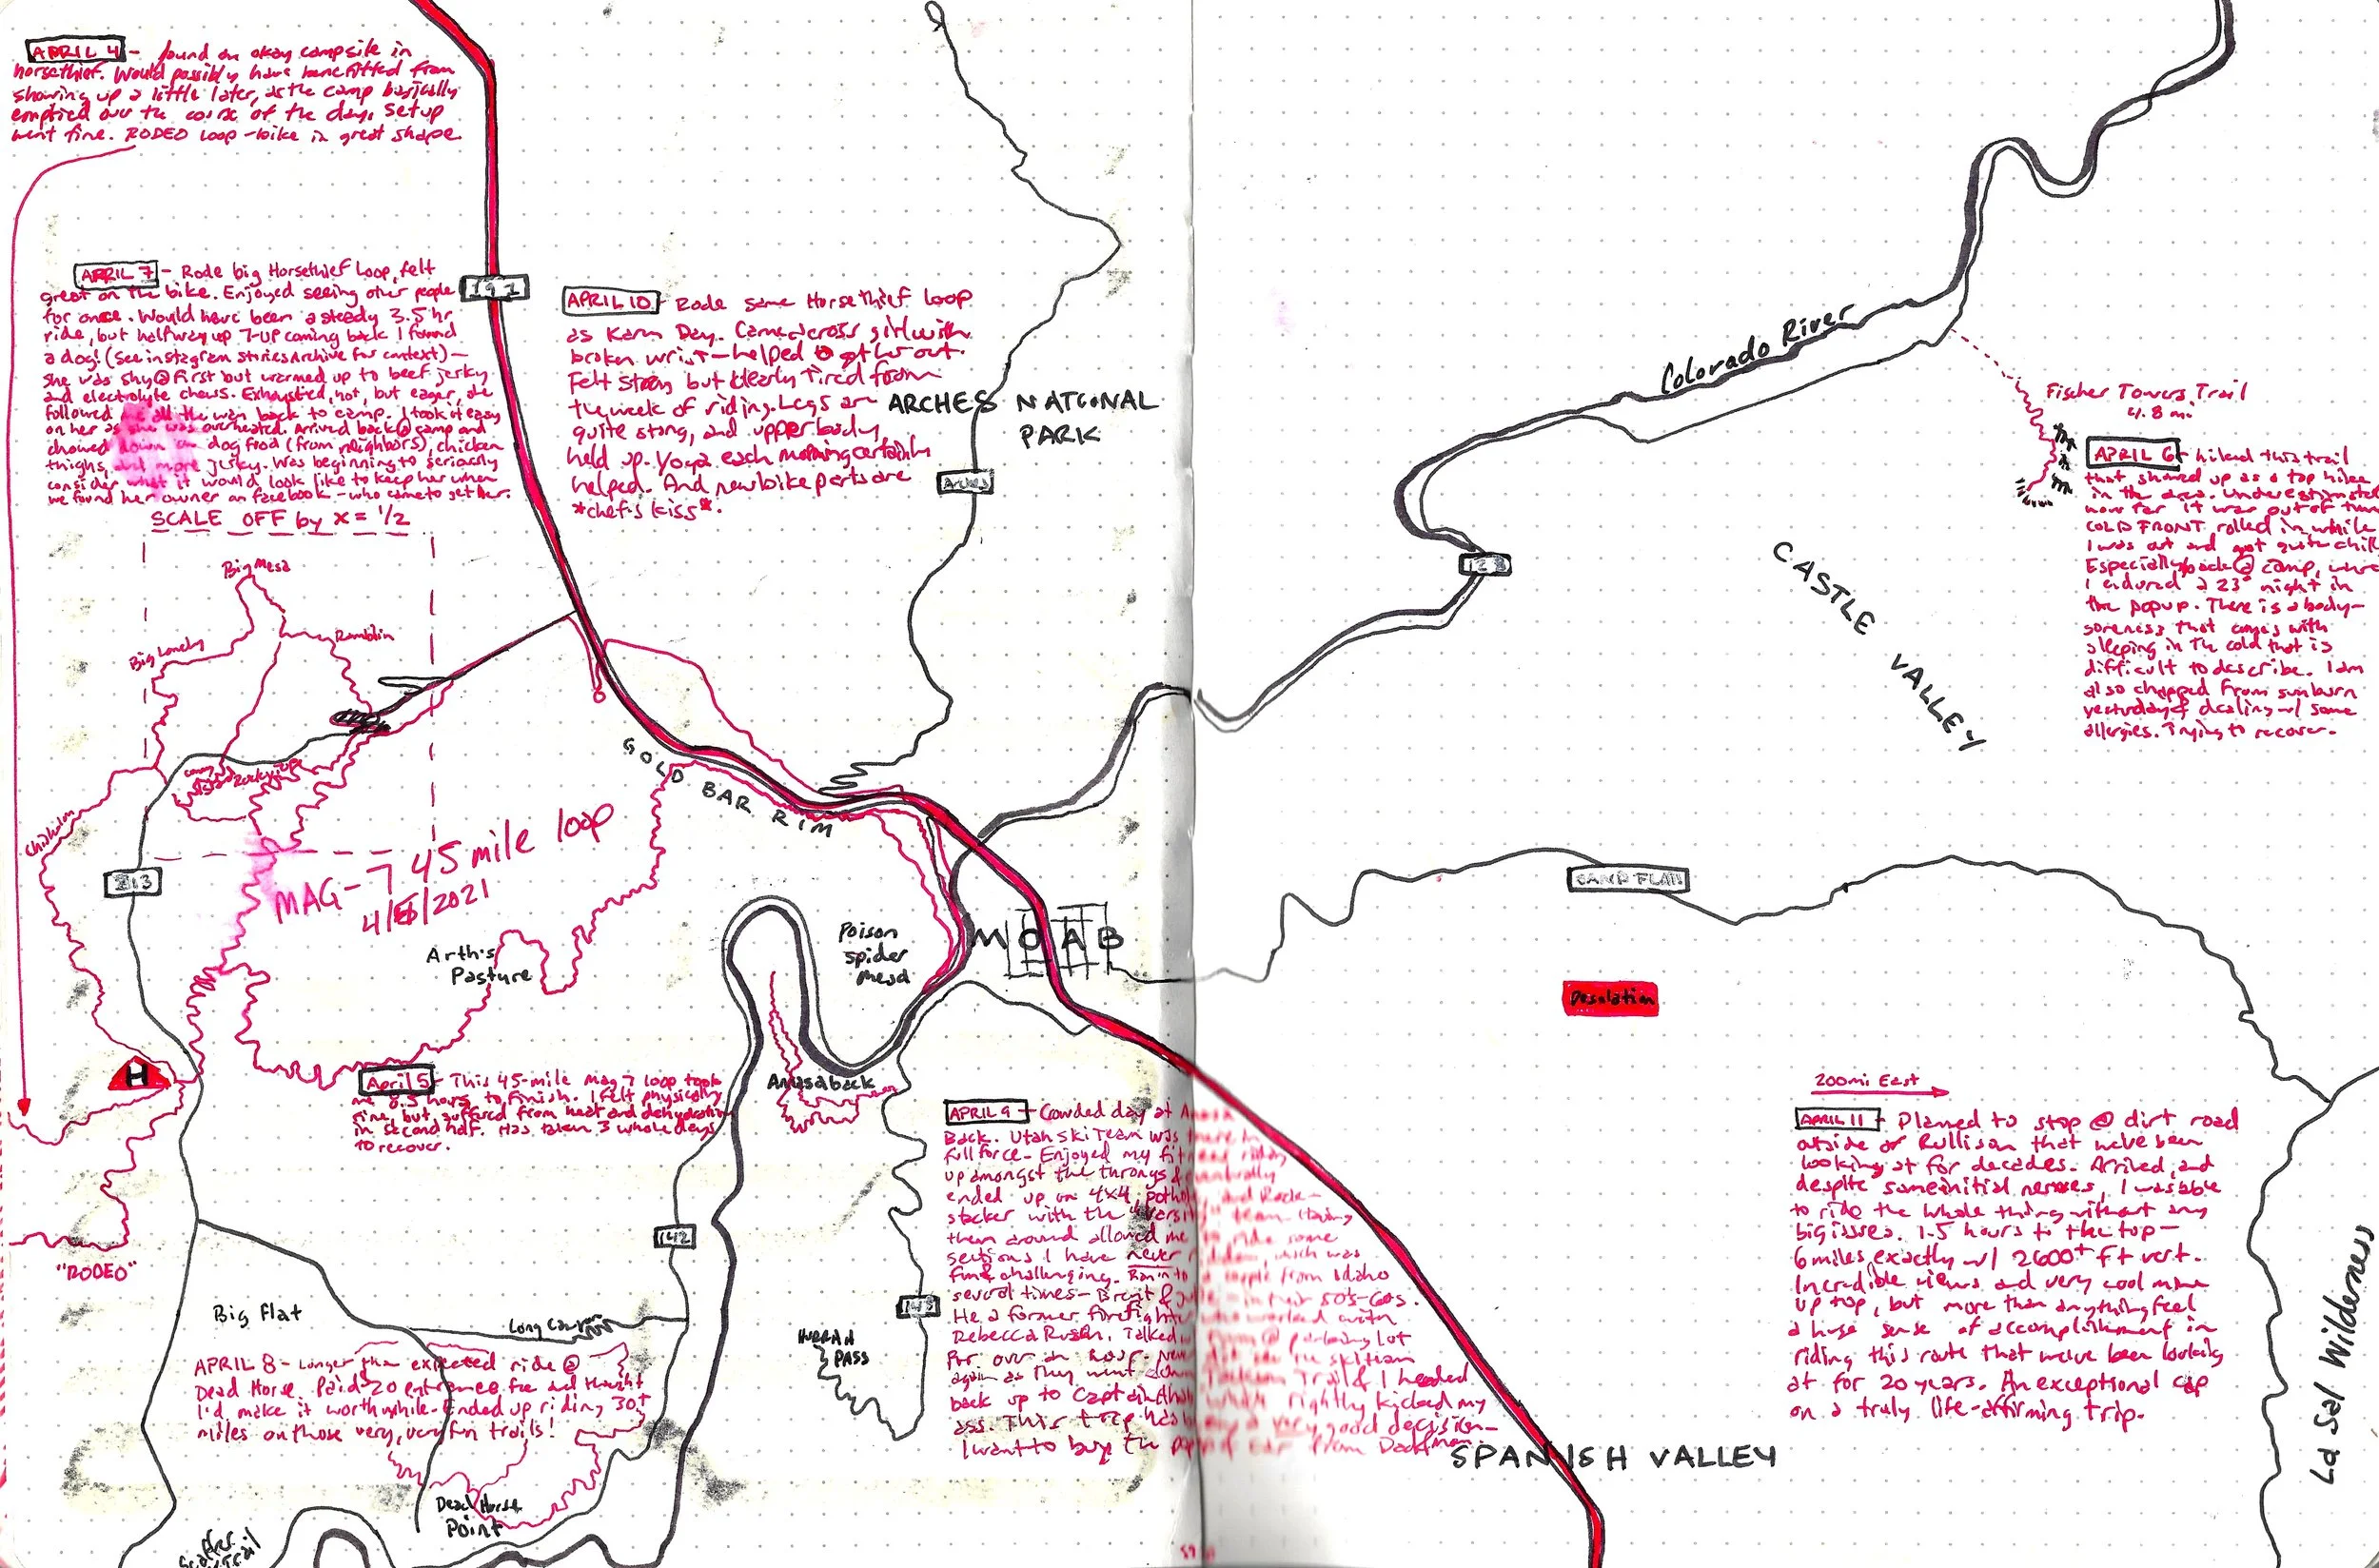 APRIL 4 - found an okay campsite in
horsethief. Would possibly have benefitted from
showing up a little later, as the camp basically
emptied over the course of the day. Setup
went fine. RODEO loop - bike in great shape
APRIL 7 - Rode big Horsethief Loop, felt
great on the bike. Enjoyed seeing other people
for once. Would have been a steady 3.5 hr
ride, but halfway up 7-UP coming back I found
a dog! (See instagram stories Archive for context) -
she was shy @ first but warmed up to beef jerky
and electrolyte chews. Exhausted, hot, but eager, she
followed me all the way back to camp. I took it easy
on her as she was overheated. Arrived back @ camp and
chowed down on dog food (from neighbors), chicken
thighs, and more jerky. Was beginning to seriously
consider what it would look like to keep her when
we found her owner on facebook - who came to get her.
SCALE OFF by x = 1/2
191
APRIL 10 - Rode same Horsethief loop
as Karm Day. Came across girl with
broken wrist - helped get her out.
Felt strong but clearly tired from
the week of riding. Legs are
quite strong, and upper body
held up. Yoga each morning certainly
helped. And new bike parts are
*chef's kiss*.
ARCHES NATIONAL
PARK
Arches
Colorado River
Fischer Towers Trail
4.8 mi
APRIL 6 - hiked this trail
that showed up as a top hike
in the area. Underestimated
how far it was out of town
COLD FRONT rolled in while
I was out and got quite chill
Especially back @ camp, where
I endured a 23° night in
the popup. There is a body-
soreness that comes with
sleeping in the cold that is
difficult to describe. I am
also chapped from sunburn
yesterday & dealing w/ some
allergies. Trying to recover.
128
CASTLE VALLEY
Big Mesa
Big Lonely
Ramblin
GOLD BAR RIM
Chisholm
313
MAG-7 45 mile loop
4/5/2021
Arth's
Pasture
Poison
Spider
Mesa
MOAB
SAND FLATS
Desolation
H
April 5 - This 45-mile Mag 7 loop took
me 8.5 hours to finish. I felt physically
fine, but suffered from heat and dehydration
in second half. Has taken 3 whole days
to recover.
Amasaback
"RODEO"
142
143
Big Flat
Long Canyon
HURRAH
PASS
APRIL 8 - Longer than expected ride @
Dead Horse. Paid $20 entrance fee and thought
I'd make it worthwhile. Ended up riding 30+
miles on those very, very fun trails!
Dead Horse
Point
Trail
APRIL 9 - Crowded day at Amasa
Back. Utah Ski Team was there in
full force - Enjoyed my fitness riding
up amongst the throngs & eventually
ended up on 4x4, pothole, and Rock-
stacker with the "varsity" team. Having
them around allowed me to ride some
sections I have never ridden, which was
fun & challenging. Ran into a couple from Idaho
several times - in their 50's-60s.
He a former firefighter who worked with
Rebecca Rusch. Talked @ parking lot
for over an hour. the ski team
again as they went down Jackson Trail & I headed
back up to Captain Ahab which rightly kicked my
ass. This trip has been a very good decision -
I want to buy the car from Dad
SPANISH VALLEY
200mi East
APRIL 11 - Planned to stop @ dirt road
outside of Rullison that we've been
looking at for decades. Arrived, and
despite some initial nerves, I was able
to ride the whole thing without any
big issues. 1.5 hours to the top -
6 miles exactly w/ 2600+ ft vert.
Incredible views and very cool mine
up top, but more than anything feel
a huge sense of accomplishment in
riding this route that we've been looking
at for 20 years. An exceptional cap
on a truly life-affirming trip.
La Sal Wilderness